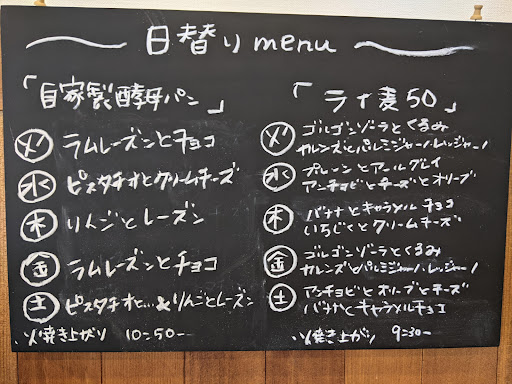 日替りmenu
「自家製酵母パン」
火 ラムレーズンとチョコ
水 ピスタチオとクリームチーズ
木 りんごとレーズン
金 ラムレーズンとチョコ
土 ピスタチオと…&りんごとレーズン
※焼き上がり 10:50ー
「ライ麦50」
火 ゴルゴンゾーラとくるみ
カレンズとパルミジャーノレッジャーノ
水 プレーンとアールグレイ
アンチョビとチーズとオリーブ
木 バナナとキャラメルチョコ
いちじくとクリームチーズ
金 ゴルゴンゾーラとくるみ
カレンズとパルミジャーノ・レッジャーノ
土 アンチョビとオリーブとチーズ
バナナとキャラメルチョコ
※焼き上がり 9:30ー